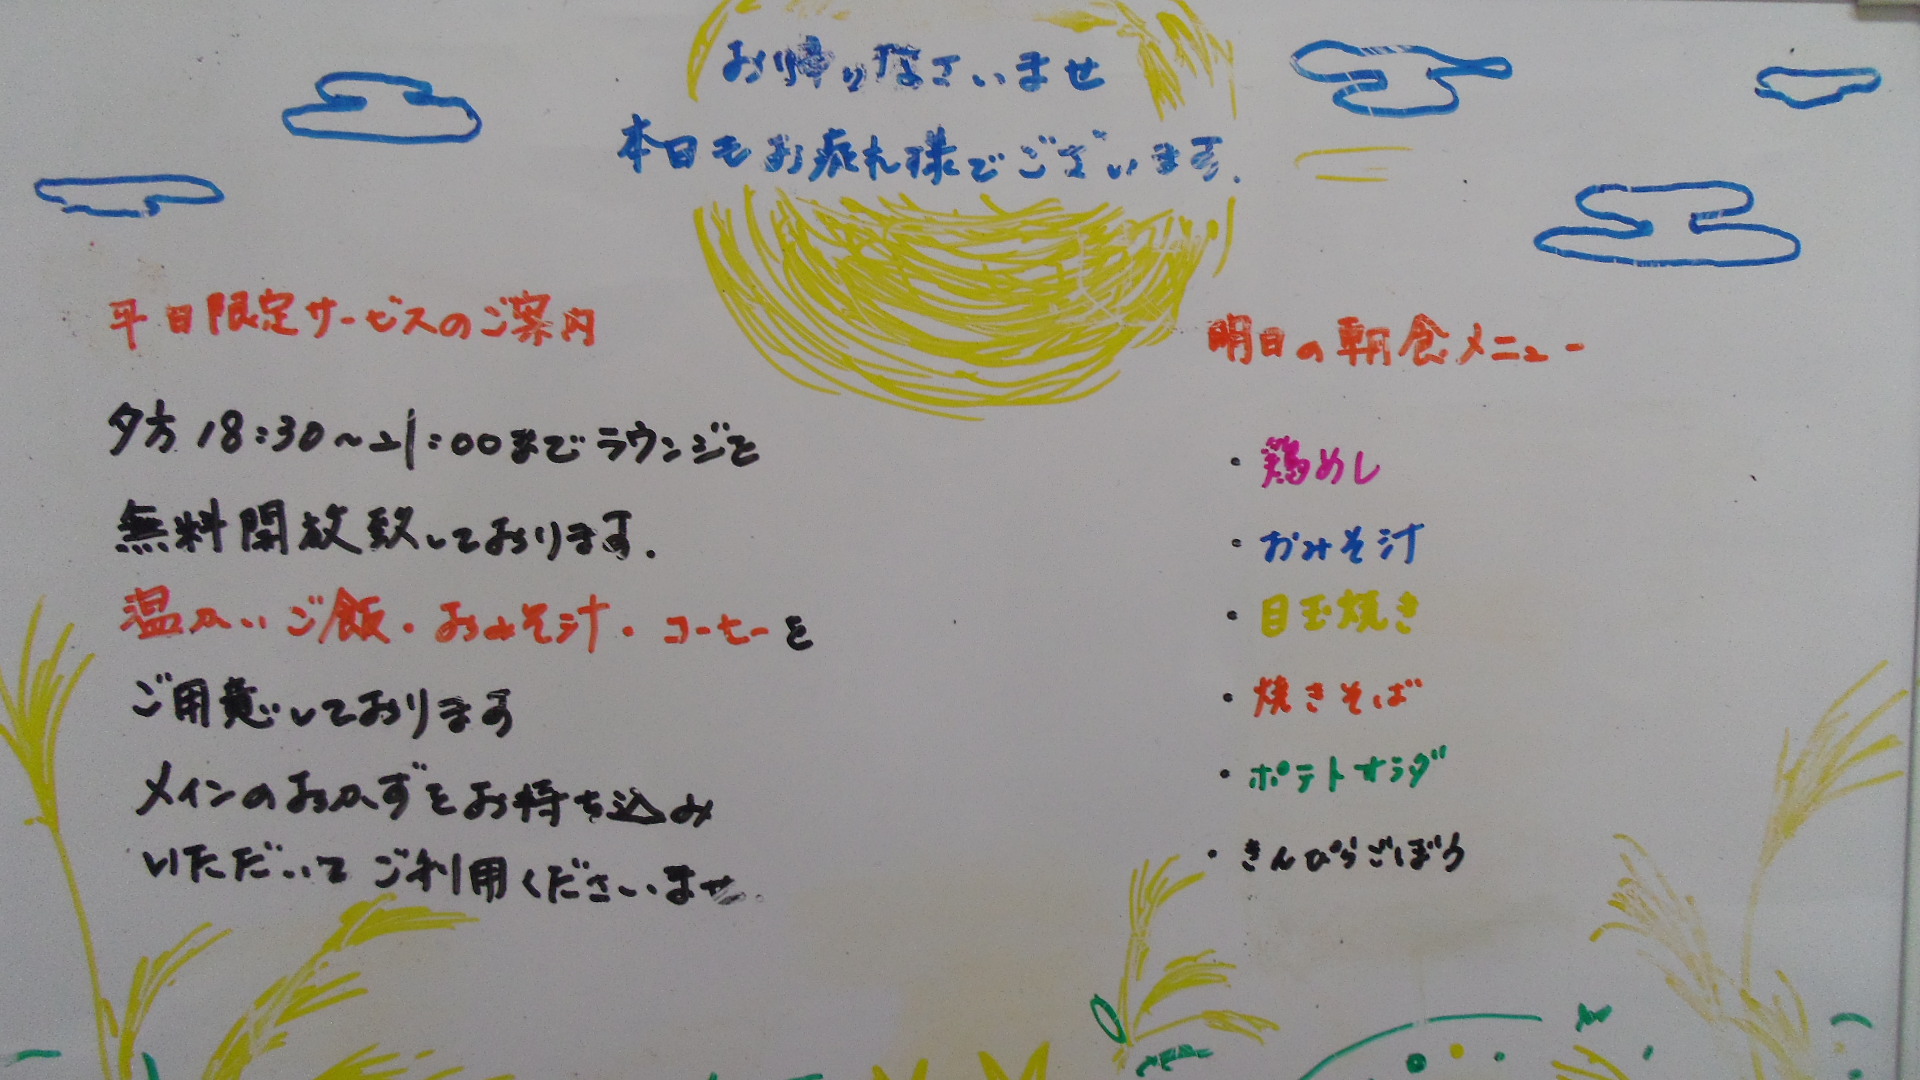 お帰りなさいませ
本日もお疲れ様でございます.
平日限定サービスのご案内
夕方 18:30～21:00までラウンジを
無料開放致しております.
温かいご飯・おみそ汁・コーヒーを
ご用意しております
メインのおかずをお持ち込み
いただいてご利用くださいませ.
明日の朝食メニュー
・鶏めし
・おみそ汁
・目玉焼き
・焼きそば
・ポテトサラダ
・きんぴらごぼう